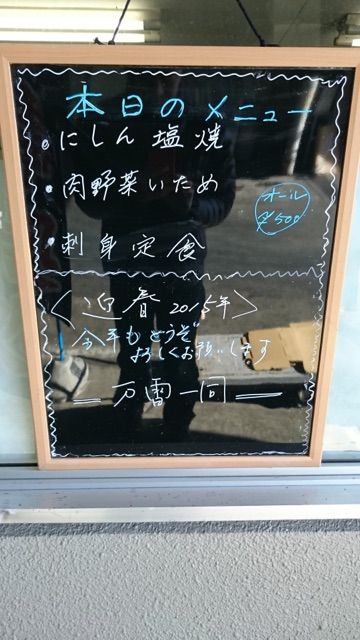 本日のメニュー
・にしん塩焼
・肉野菜いため
・刺身定食
オール
¥500
<迎春 2015年>
今年もどうぞ
よろしくお願いします
＝万雷一同＝